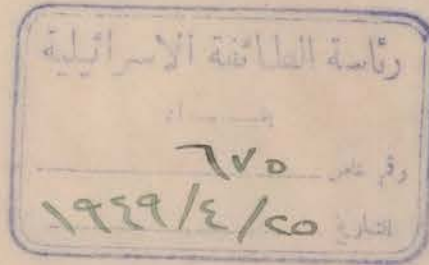 رئاسة الطائفة الاسرائيلية
بغداد
رقم ٦٧٥
التاريخ ١٩٤٩/٤/٢٥